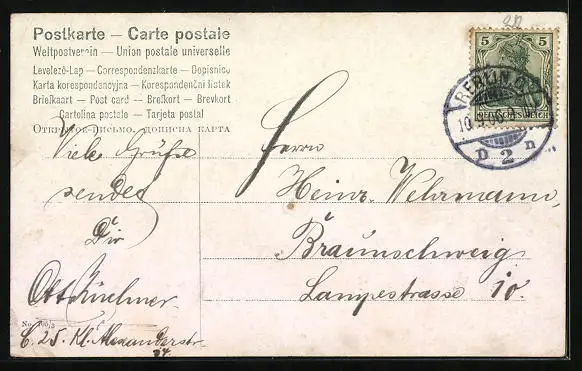 Postkarte — Carte postale
Weltpostverein — Union postale universelle
Levelező-Lap — Correspondenzkarte — Dopisnice
Karta korespondencyjna — Korespondenční lístek
Briefkaart — Post card — Brefkort — Brevkort
Cartolina postale — Tarjeta postal
ОТКРЫТОЕ ПИСЬМО. ДОПИСНА КАРТА
Viele Grüße
sendet
Dir
Otto
No.
C. 25. Kl. Alexanderstr.
Herrn
Heinz. Wehrmann,
Braunschweig
Lampestrasse 10.
5 5
DEUTSCHES REICH
BERLIN
10.
2 n